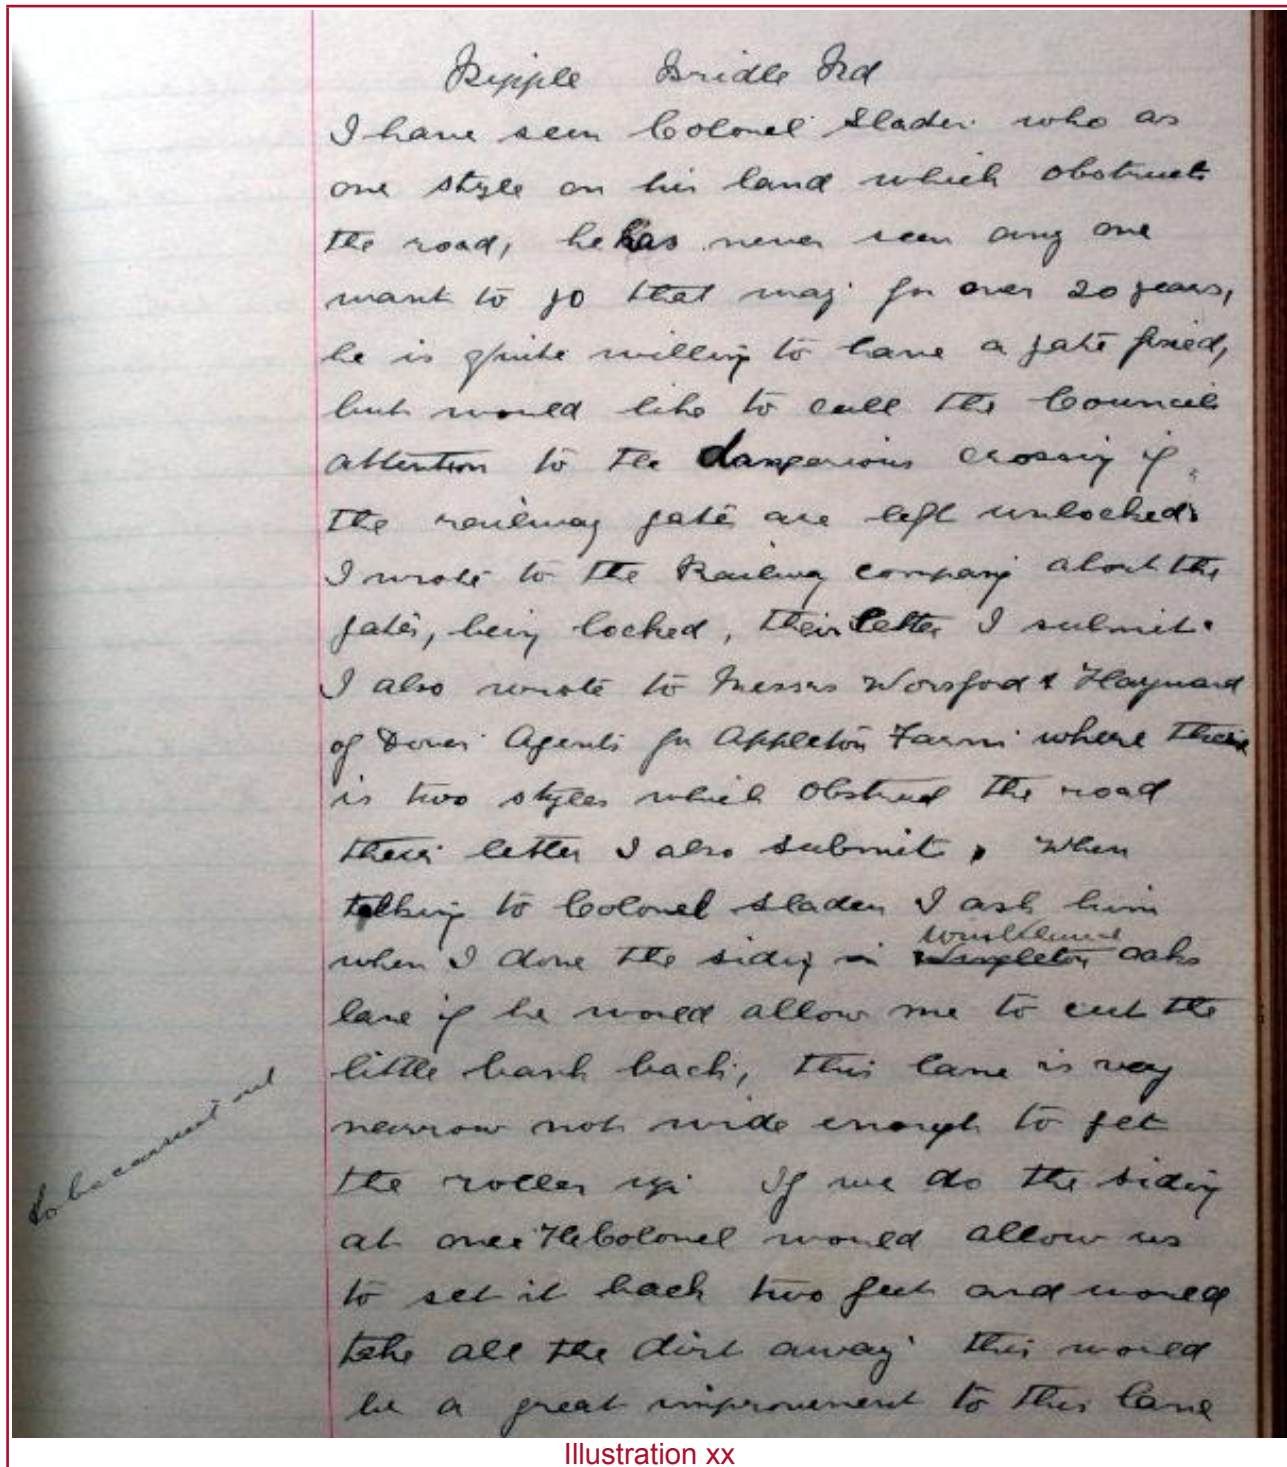 Ripple Bridle Rd
I have seen Colonel Sladen who as
one style on his land which obstructs
the road, he has never seen any one
want to go that way for over 20 years,
he is quite willing to have a gate fixed,
but would like to call the Councils
attention to the dangerious crossing if
the railway gates are left unlocked.
I wrote to the Railway company about the
gates, being locked, their letter I submit.
I also wrote to Messrs Worsfod & Hayward
of Dover Agents for Appleton Farm where there
is two styles which obstruct the road
their letter I also submit, When
talking to Colonel Sladen I ask him
when I done the siding in oaks
lane if he would allow me to cut the
little bank back, this lane is very
narrow not wide enough to get
to be carried out
the roller up If we do the siding
at once The Colonel would allow us
to set it back two feet and would
take all the dirt away this would
be a great improvement to this lane
Illustration xx